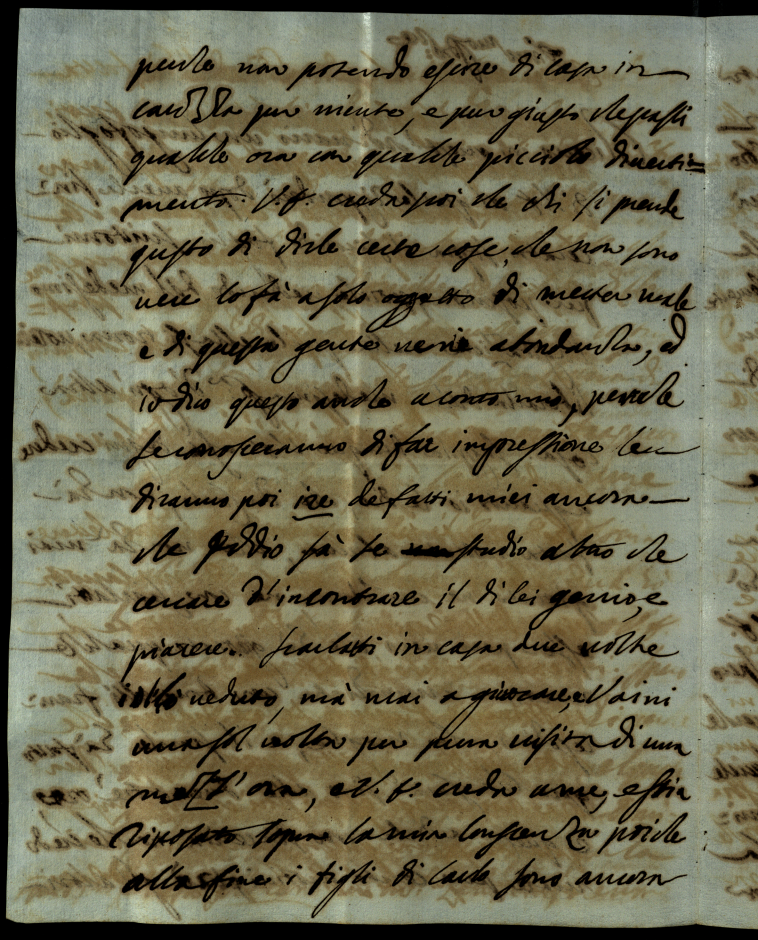 perche non potendo escire di casa in
carozza per niente, e pur giusto che passi
qualche ora con qualche picciolo diverti=
mento. V. S. creda poi che chi si prende
gusto di dirle certe cose, che non sono
vere lo fà a solo oggetto di metter male
e di questa gente ne ne abondarla, ed
io dico questo anche a conto mio, perche
se conosceranno di far impressione le
diranno poi ire de fatti miei ancora
che Iddio sà se studio altro che
cercare d'incontrare il di lei genio, e
piacere. Scarlatti in casa due volte
veduto, mà mai a giuocare, e Vaini
una sol volta per pura visita di una
mezz'ora, e V. S. creda a me, e stia
riposato sopra la mia conscienza poiche
alla fine i figli di Carlo sono ancora